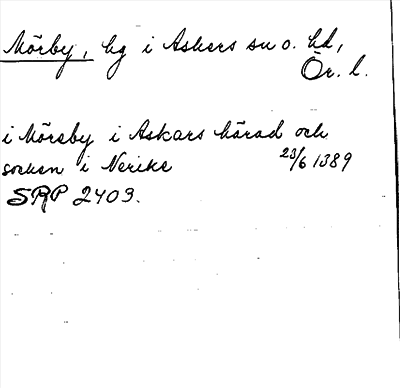 Mörby, hg i Askers sn o. hd,
Ör. l.
i Mörsby i Askars härad och
socken i Nerike 23/6 1389
SRP 2403.